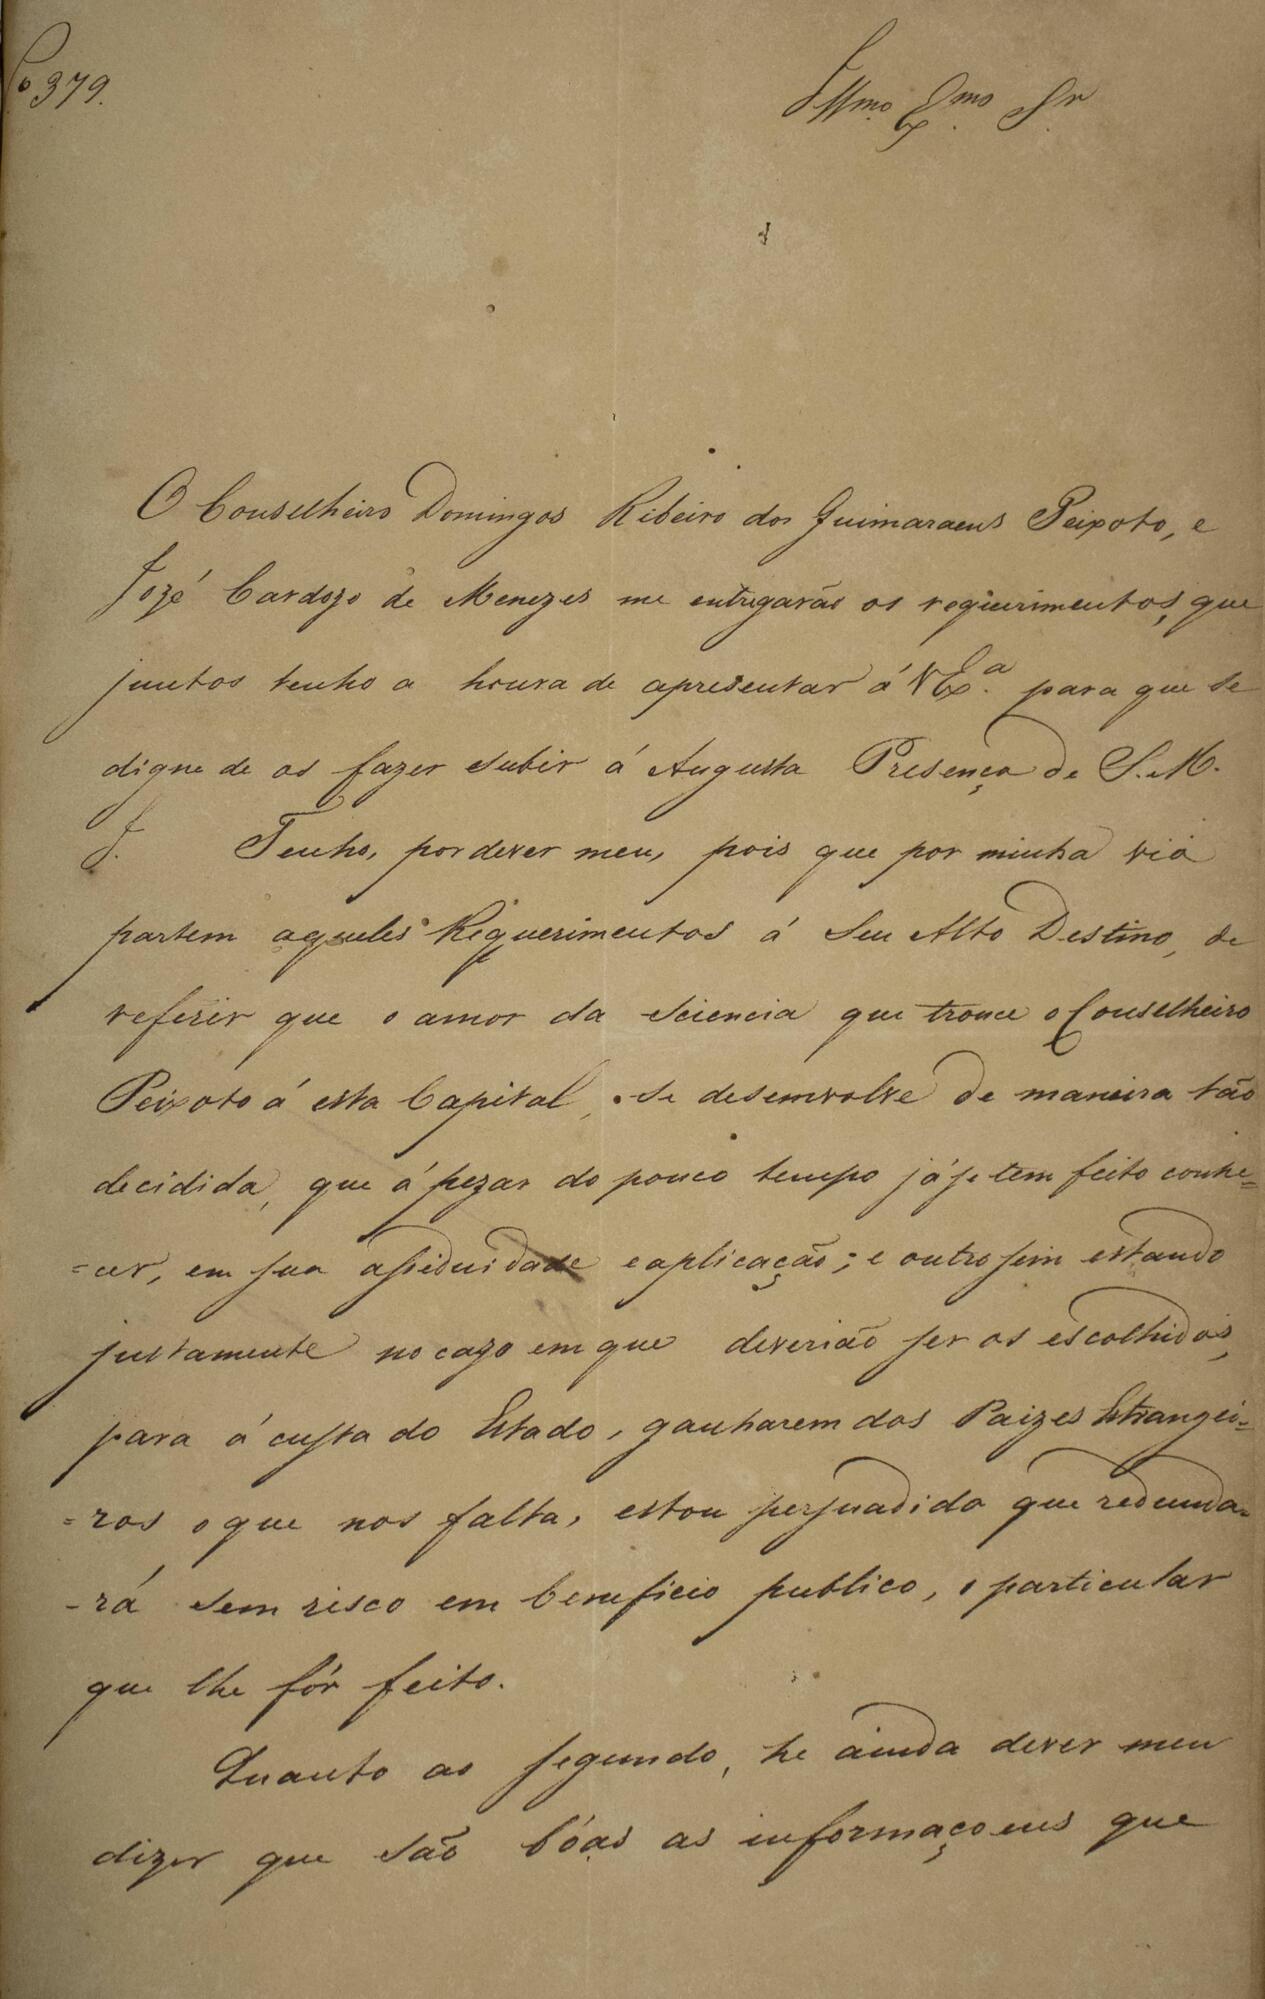 379.
Illmo. Exmo. Sr.
O Conselheiro Domingos Ribeiro dos Guimaraens Peixoto, e
Jozé Cardozo de Menezes me entregarão os requerimentos, que
juntos tenho a honra de apresentar á VExa. para que se
digne de os fazer subir á Augusta Presença de S. M.
I. Tenho, por dever meu, pois que por minha via
partem aqueles Requerimentos á Seu Alto Destino, de
referir que o amor da Sciencia que trouce o Conselheiro
Peixoto á esta Capital, se desenvolve de maneira tão
decidida, que á pezar do pouco tempo já se tem feito conhe=
=cer, em sua assiduidade e aplicação; e outro sim estando
justamente no cazo em que deverião ser os escolhidos,
para á custa do Estado, ganharem dos Paizes Estrangei=
=ros o que nos falta, estou persuadido que redunda=
-rá sem risco em beneficio publico, o particular
que lhe fôr feito.
Quanto ao segundo, he ainda dever meu
dizer que são bôas as informaçoens que